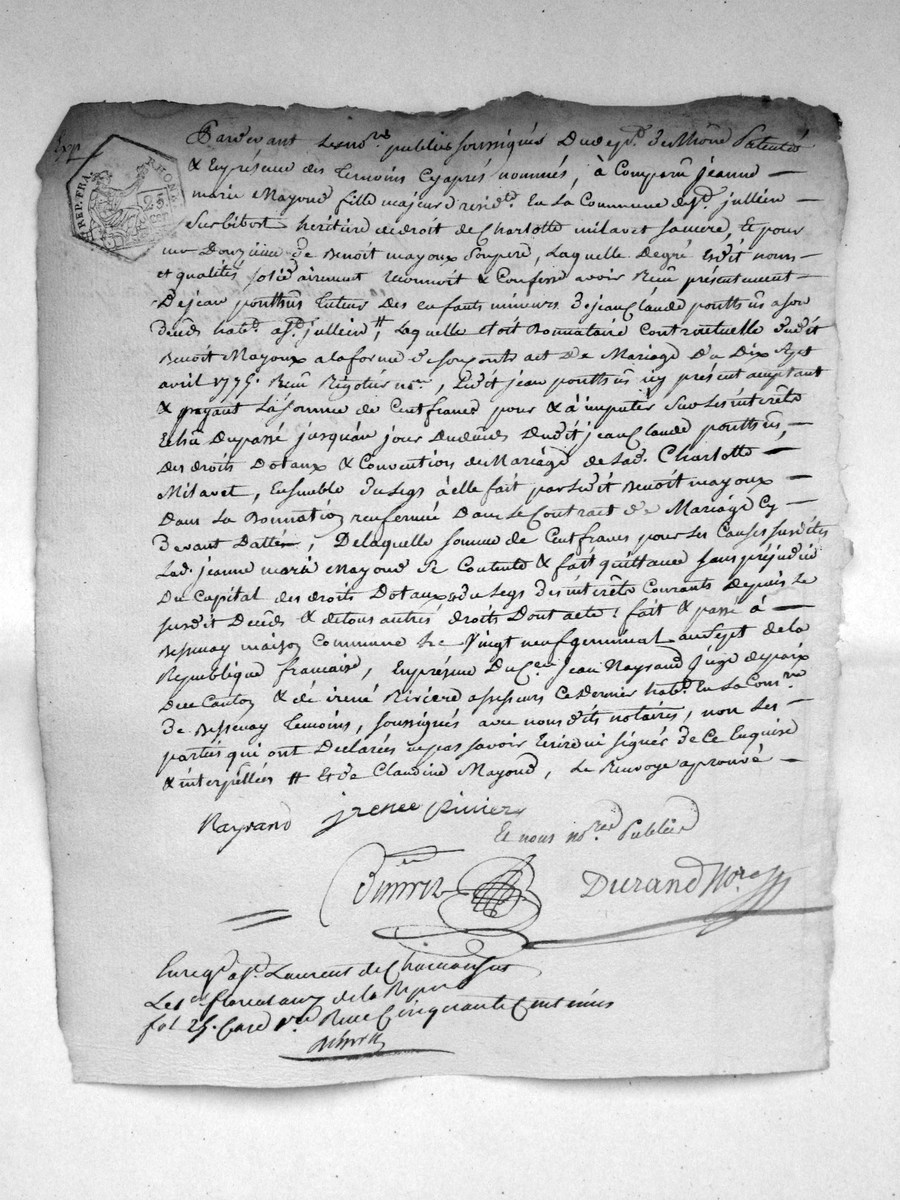 Exp
REP. FRA.
RHONE
25 CENT
Pardevant Les nores publics soussignés Du dept. du Rhône Patentés
& En présence des temoins Cyaprés nommés, à Comparu jeanne
marie Mayoud fille majeure resid.te En La Commune de st. jullien
Sur bibost heritiere de droit de Charlotte milavet sa mere, Et pour
un Douzieme de Benoit mayoux Son pere, Laquelle De gré Esdit noms
et qualités solidairement reconnoit & Confesse avoir Reçu présentement
De jean ponthus tuteur Des enfants mineurs de jean Claude ponthus a son
decés habt. a st. jullien #, Laquelle etoit Donnataire Contractuelle dudit
Benoit Mayoux a la forme de son act de Mariage du Dix Sept
avril 1775. Reçu nore, Ledit jean ponthus icy présent acceptant
& payant La somme de Cent francs pour & à imputer Sur Les intérêts
Echu Du passé jusqu'au jour Du decés Dudit jean Claude ponthus,
Des droits Dotaux & Convention de Mariage de Lad. Charlotte
Milavet, Ensemble du Legs à elle fait par Ledit Benoit mayoux
Dans La Donnation renfermée Dans Le Contrat de Mariage Cy
Devant Datté, De laquelle somme de Cent francs pour Les Causes susdites
Lad. jeanne marie Mayoud Se Contente & fait quittance sans préjudice
Du Capital des droits Dotaux & du Legs des intérêts Courants Depuis Le
susdit Decés & de tous autres droits Dont acte! fait & passé à
Bessenay maison Commune Le Vingt neuf germinal an Sept de La
Republique francaise, En présence Du Cen. jean Raynand juge de paix
Du Canton & de irené Riviere assesseurs Ce dernier habt. En La Comne
de Bessenay temoins, soussignés avec nousdits notaires, non Les
parties qui ont Declarées ne pas savoir Ecrire ni signer de Ce Enquise
& interpellées # Et de Claudine Mayoud, Le Renvoye aprouvé
Raynand jrenee Rivier
Et nous nores Publics
Durand Nore
Enregé. a st. Laurent de Chamousset
Le floreal an 7 de la Repue
fol 25. Case Reçu Cinquante Centimes